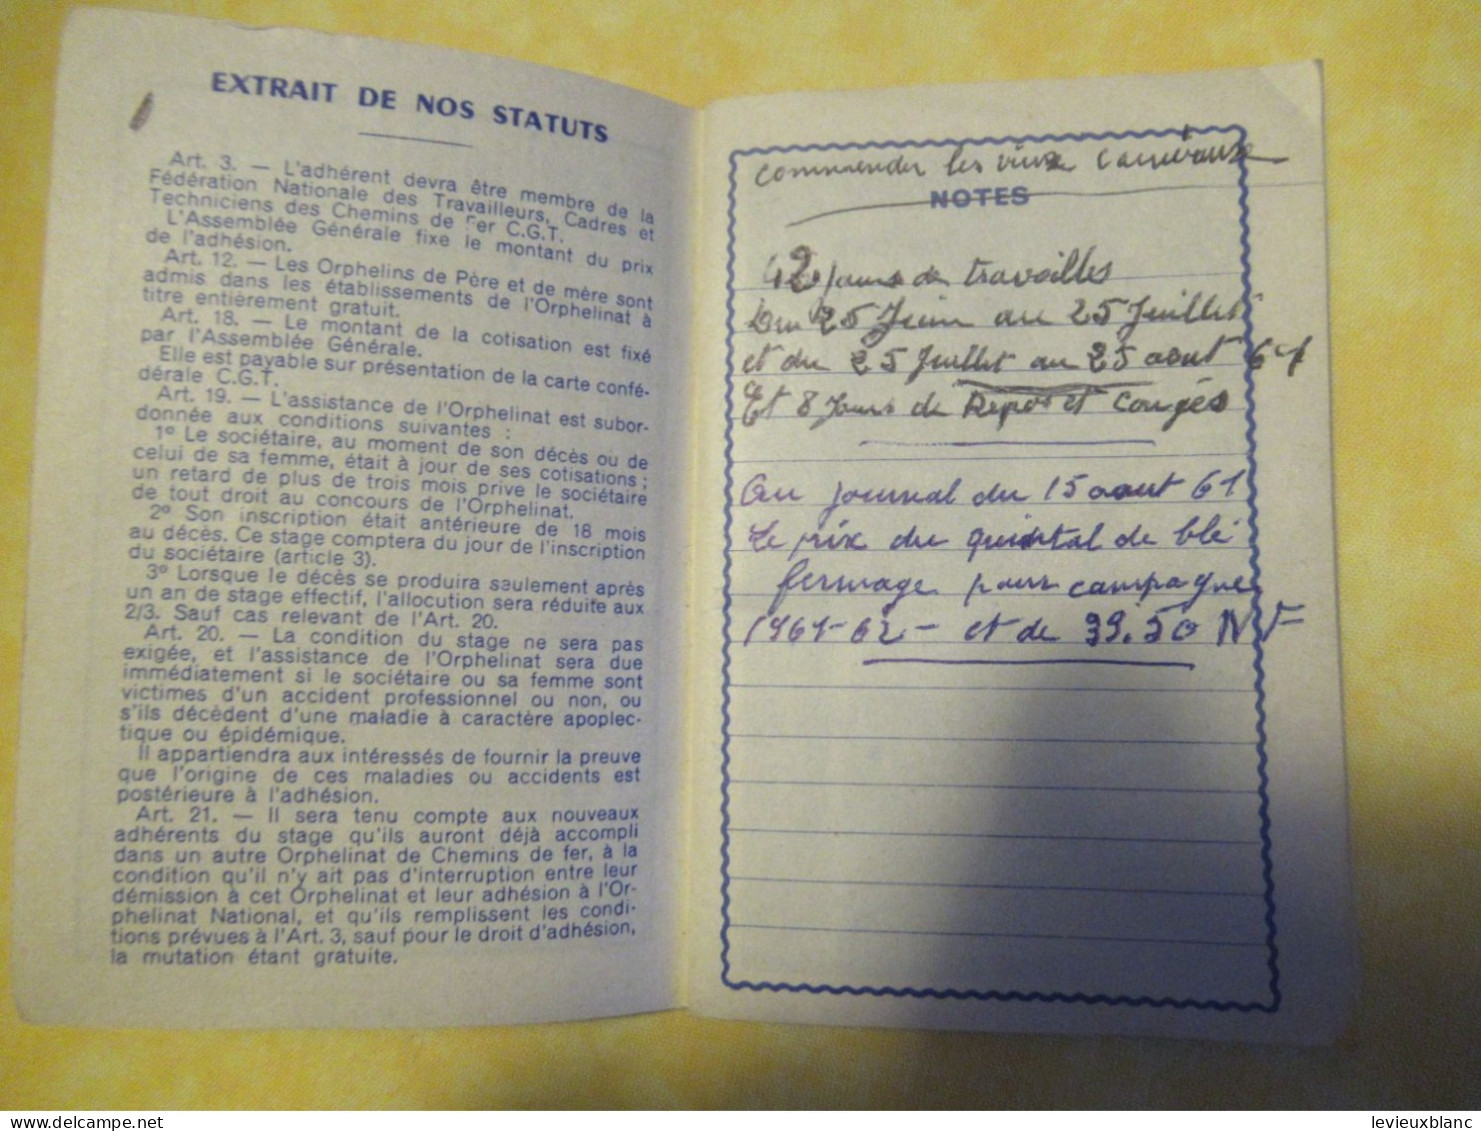 EXTRAIT DE NOS STATUTS
Art. 3. — L'adhérent devra être membre de la
Fédération Nationale des Travailleurs, Cadres et
Techniciens des Chemins de Fer C.G.T.
L'Assemblée Générale fixe le montant du prix
de l'adhésion.
Art. 12. — Les Orphelins de Père et de mère sont
admis dans les établissements de l'Orphelinat à
titre entièrement gratuit.
Art. 18. — Le montant de la cotisation est fixé
par l'Assemblée Générale.
Elle est payable sur présentation de la carte confé-
dérale C.G.T.
Art. 19. — L'assistance de l'Orphelinat est subor-
donnée aux conditions suivantes :
1° Le sociétaire, au moment de son décès ou de
celui de sa femme, était à jour de ses cotisations ;
un retard de plus de trois mois prive le sociétaire
de tout droit au concours de l'Orphelinat.
2° Son inscription était antérieure de 18 mois
au décès. Ce stage comptera du jour de l'inscription
du sociétaire (article 3).
3° Lorsque le décès se produira saulement après
un an de stage effectif, l'allocution sera réduite aux
2/3. Sauf cas relevant de l'Art. 20.
Art. 20. — La condition du stage ne sera pas
exigée, et l'assistance de l'Orphelinat sera due
immédiatement si le sociétaire ou sa femme sont
victimes d'un accident professionnel ou non, ou
s'ils décèdent d'une maladie à caractère apoplec-
tique ou épidémique.
Il appartiendra aux intéressés de fournir la preuve
que l'origine de ces maladies ou accidents est
postérieure à l'adhésion.
Art. 21. — Il sera tenu compte aux nouveaux
adhérents du stage qu'ils auront déjà accompli
dans un autre Orphelinat de Chemins de fer, à la
condition qu'il n'y ait pas d'interruption entre leur
démission à cet Orphelinat et leur adhésion à l'Or-
phelinat National, et qu'ils remplissent les condi-
tions prévues à l'Art. 3, sauf pour le droit d'adhésion,
la mutation étant gratuite.
commender les vieux
NOTES
42 jours de travailles
Du 25 Juin au 25 Juillet
et du 25 Juillet au 25 aout 61
Et 8 Jours de Repos et Congés
Au journal du 15 aout 61
Le prix du quintal de blé
fermage pour campagne
1961-62 - et de 39.50 NF
levieuxblanc